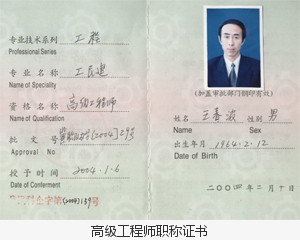 专业技术系列 工程
Professional Series
专业名称 工民建
Name of Speciality
资格名称 高级工程师
Name of Qualification
批文号
Approval No
授予时间 2004.1.6
Date of Conferment
(加盖审批部门钢印有效)
姓名 王春波 性别 男
Name Sex
出生年月 1964.2.12
Date of Birth
二〇〇四年二月十日
高级工程师职称证书